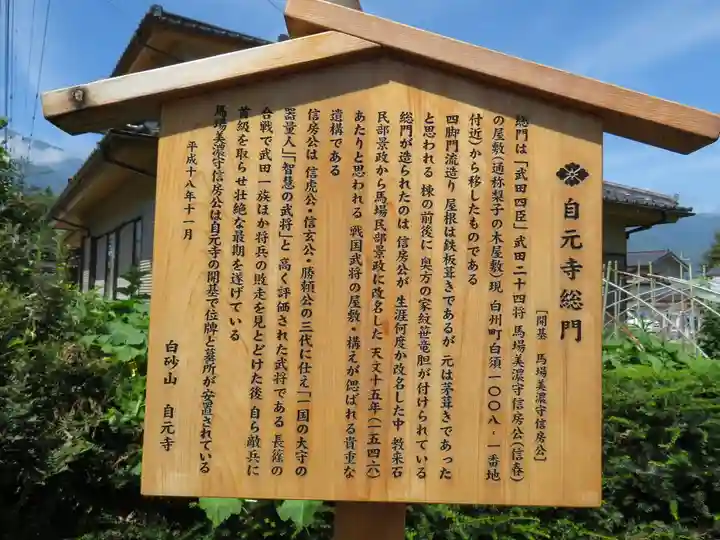 自元寺総門
[開基 馬場美濃守信房公]
総門は「武田四臣」武田二十四将 馬場美濃守信房公(信春)
の屋敷(通称梨子の木屋敷)現 白州町白須一〇〇八‐一番地
付近)から移したものである
四脚門流造り 屋根は鉄板葺きであるが 元は茅葺きであった
と思われる 棟の前後に 奥方の家紋笹竜胆が付けられている
総門が造られたのは 信房公が 生涯何度か改名した中 教来石
民部景政から馬場民部景政に改名した 天文十五年(一五四六)
あたりと思われる 戦国武将の屋敷・構えが偲ばれる貴重な
遺構である
信房公は 信虎公・信玄公・勝頼公の三代に仕え「一国の太守の
器量人」「智慧の武将」と 高く評価された武将である 長篠の
合戦で武田一族ほか将兵の敗走を見とどけた後 自ら敵兵に
首級を取らせ壮絶な最期を遂げている
馬場美濃守信房公は自元寺の開基で位牌と墓所が安置されている
平成十八年十一月
白砂山 自元寺